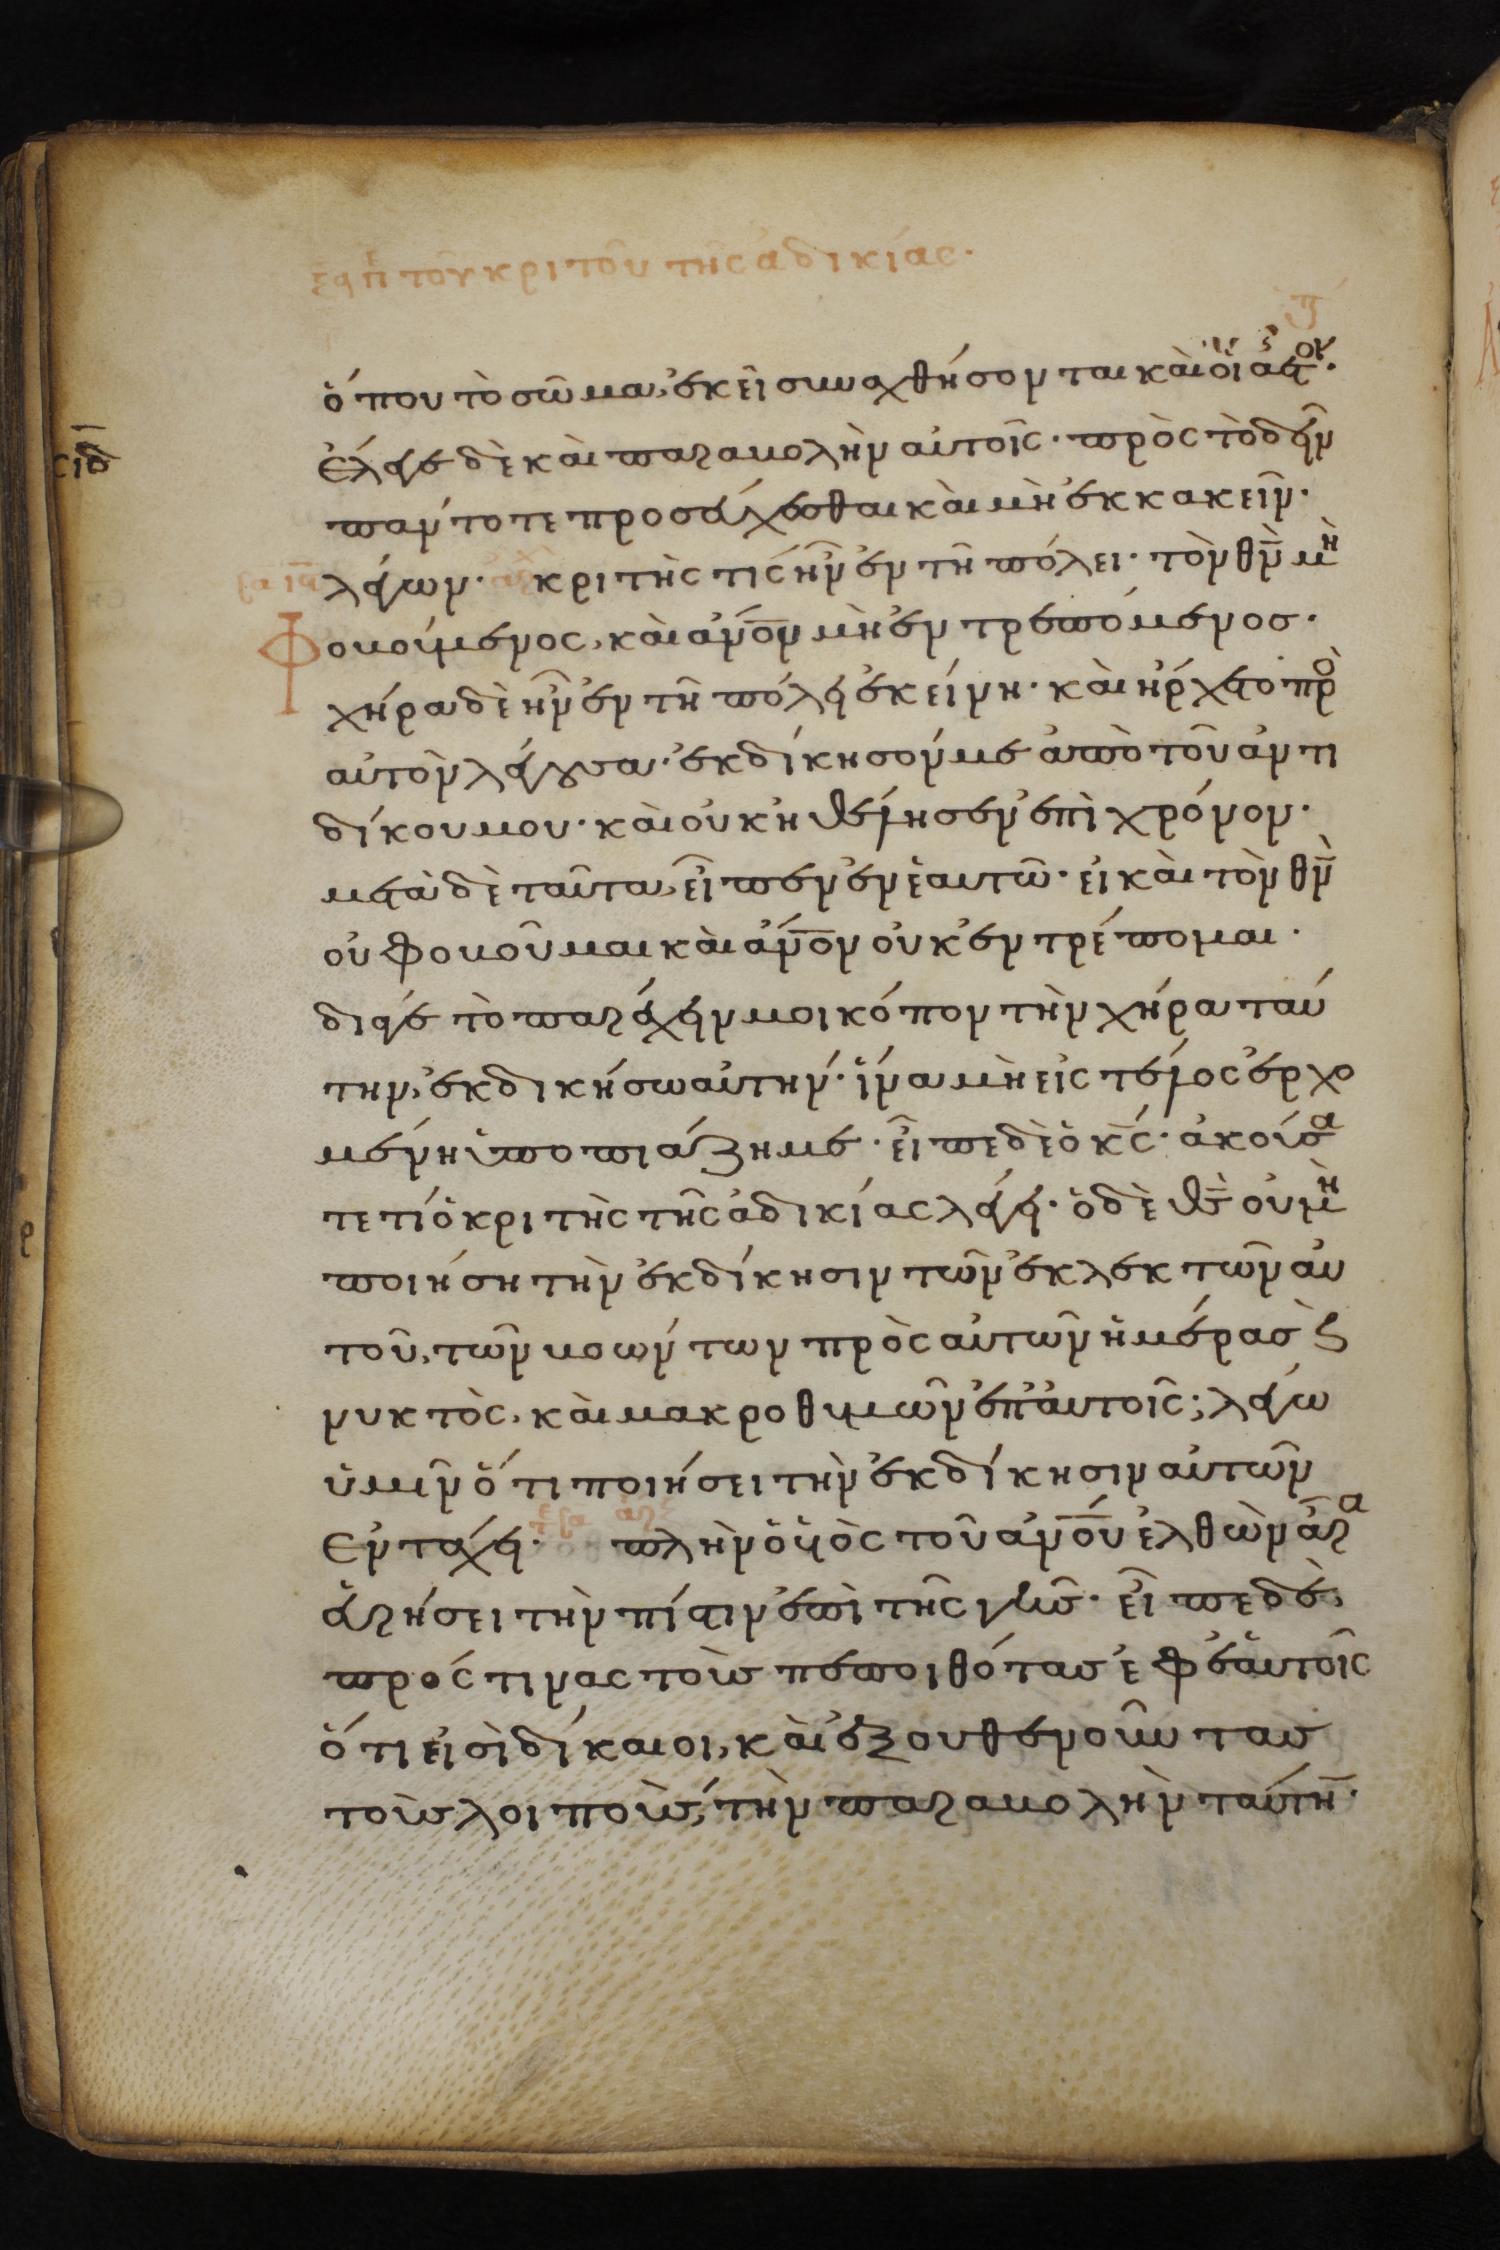 ξαπ τοῦ κριτοῦ τῆς ἀδικίας·
ὅπου τὸ σῶμα, ἐκεῖ συναχθήσονται καὶ οἱ ἀετοί·
σιδ
ἔλεγε δὲ καὶ παραβολὴν αὐτοῖς· πρὸς τὸ δεῖν
πάντοτε προσεύχεσθαι καὶ μὴ ἐκκακεῖν·
λέγων· κριτὴς τίς ἦν ἐν τῇ πόλει· τὸν θν̅ μὴ
φοβούμενος, καὶ ἄνο̅ν μὴ ἐντρεπόμενος·
χήρα δὲ ἦν ἐν τῇ πόλει ἐκείνη· καὶ ἤρχετο πρὸ
αὐτὸν λέγουσα· ἐκδίκησόν με ἀπὸ τοῦ ἀντι
δίκου μου· καὶ οὐκ ἠθέλησεν ἐπὶ χρόνον·
μετὰ δὲ ταῦτα, εἶπεν ἐν ἑαυτῷ· εἰ καὶ τὸν θν̅
οὐ φοβοῦμαι καὶ ἄνο̅ν οὐκ ἐντρέπομαι·
διά γε τὸ παρέχειν μοι κόπον τὴν χήραν ταύ
την, ἐκδικήσω αὐτήν· ἵνα μὴ εἰς τέλος ἐρχο
μένη ὑποπιάζη με· εἶπε δὲ ὁ κς̅· ἀκούσα
τε τί ὁ κριτὴς τῆς ἀδικίας λέγει· ὁ δὲ θς̅ οὐ μὴ
ποιήση τὴν ἐκδίκησιν τῶν ἐκλεκτῶν αὐ
τοῦ, τῶν βοώντων πρὸς αὐτὸν ἡμέρας ϗ
νυκτὸς, καὶ μακροθυμῶν ἐπ' αὐτοῖς; λέγω
ὑμῖν ὅτι ποιήσει τὴν ἐκδίκησιν αὐτῶν
ἐν τάχει· πλὴν ὁ υἱὸς τοῦ ἀνο̅υ ἐλθὼν ἆρα
εὑρήσει τὴν πίστιν ἐπὶ τῆς γῆς· εἶπε δὲ,
πρός τινας τοὺς πεποιθότας ἐφ' ἑαυτοῖς
ὅτι εἰσὶ δίκαιοι, καὶ ἐξουθενοῦντας
τοὺς λοιποὺς, τὴν παραβολὴν ταύτην·